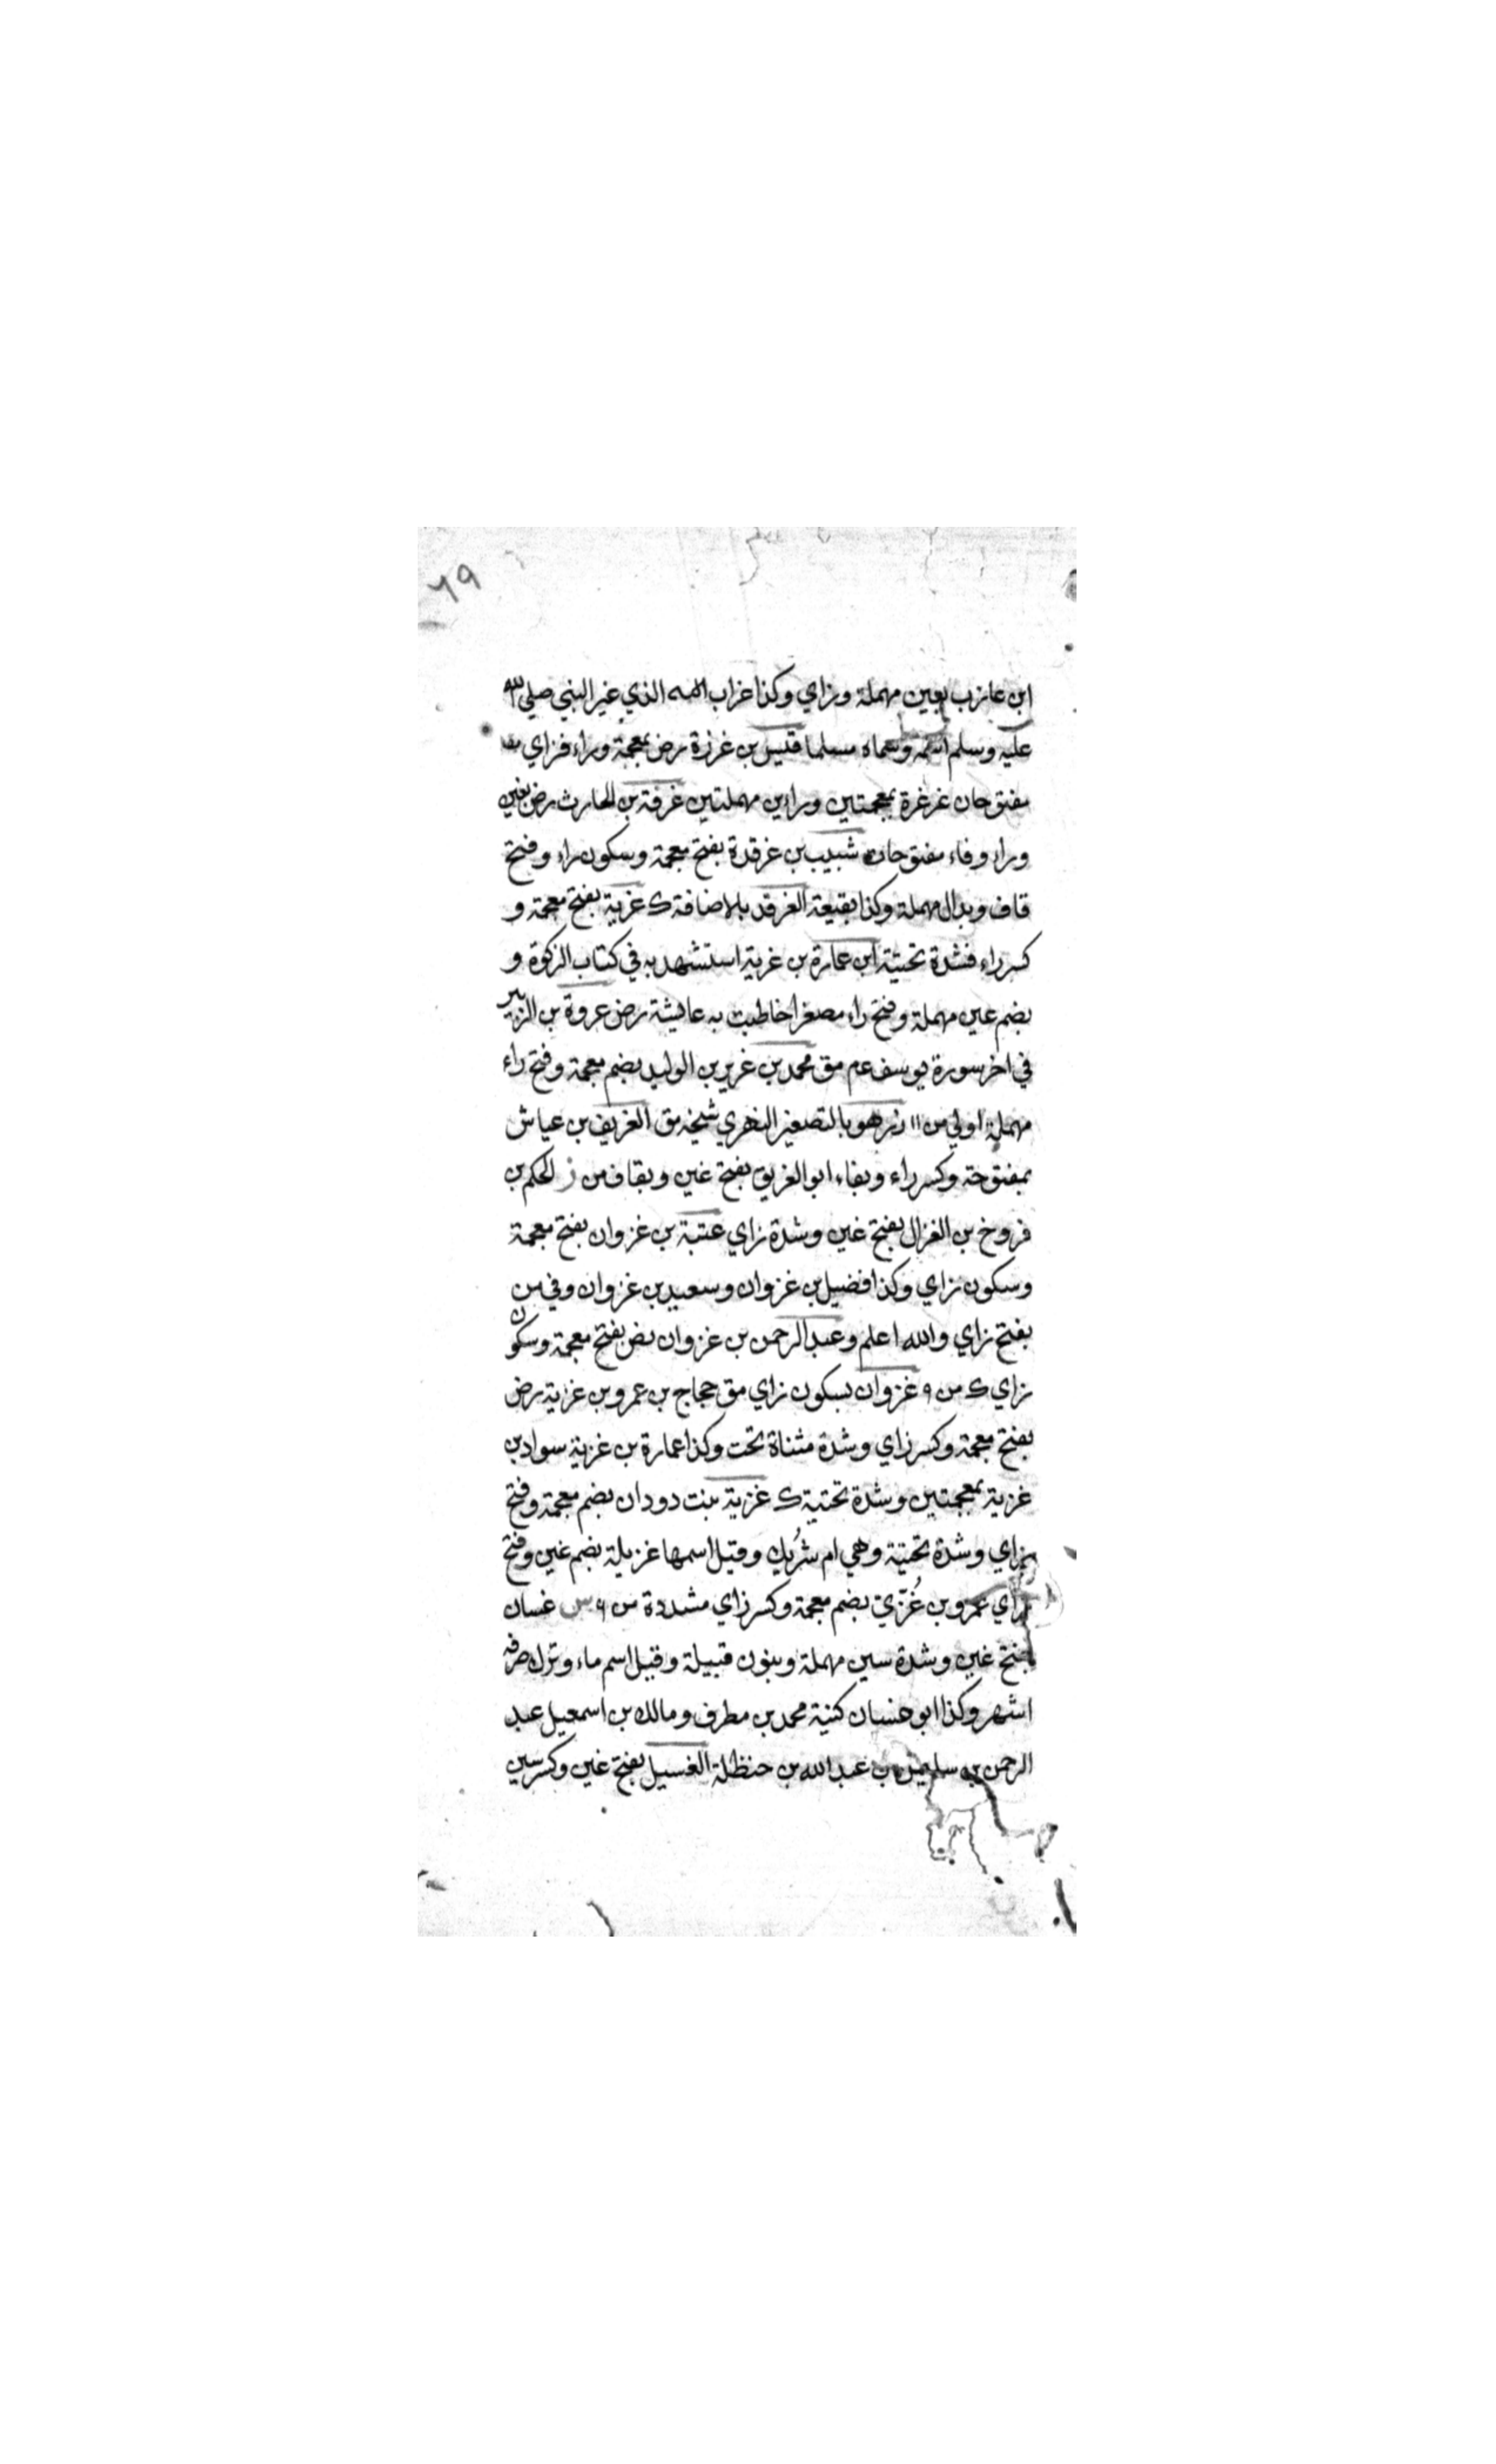 ٦٩
ابن عازب بعين مهملة وزاي وكذا غراب اسم الذي غير النبي صلى الله
عليه وسلم اسمه وسماه مسلما قيس بن غرزة رض بمعجمة وراء فزاي
مفتوحات غرغرة بمعجمتين وراين مهملتين غرفة بن الحارث رض بغين
وراء وفاء مفتوحات شبيب بن غرقدة بفتح معجمة وسكون راء وفتح
قاف وبدال مهملة وكذا بقيعة الغرقد بالاضافة ك غرية بفتح معجمة و
كسر راء فشدة تحتية ابن عمارة بن غرية استشهد به في كتاب الزكوة و
بضم عين مهملة وفتح راء مصغرا خاطبت به عايشة رض عروة بن الزبير
في اخر سورة يوسف عم مق محمد بن غرير بن الوليد بضم معجمة وفتح راء
مهملة اولى من ١١ زهر هو بالتصغير الزهري شيخه مق الغريف بن عياش
بمفتوحة وكسر راء وبفاء ابو الغريق بفتح غين وبقاف من ز الحكم بن
فروخ بن الغزال بفتح غين وشدة زاي عتبة بن غزوان بفتح معجمة
وسكون زاي وكذا فضيل بن غزوان وسعيد بن غزوان وفي من
بفتح زاي والله اعلم وعبد الرحمن بن غزوان بض بفتح معجمة وسكون
زاي ك من ٩ غزوان بسكون زاي مق حجاج بن عمرو بن غزية رض
بفتح معجمة وكسر زاي وشدة مثناة تحت وكذا عمارة بن غزية سواد بن
غزية بمعجمتين وشدة تحتية ك غزية بنت دودان بضم معجمة وفتح
زاي وشدة تحتية وهي ام شريك وقيل اسمها غزيلة بضم غين وفتح
زاي عمرو بن غُزّي بضم معجمة وكسر زاي مشددة من ٩ س غسان
بفتح غين وشدة سين مهملة وبنون قبيلة وقيل اسم ماء وترك صرفه
اشهر وكذا ابو غسان كنية محمد بن مطرف ومالك بن اسمعيل عبد
الرحمن بن سليمن بن عبد الله بن حنظلة الغسيل بفتح غين وكسر سين